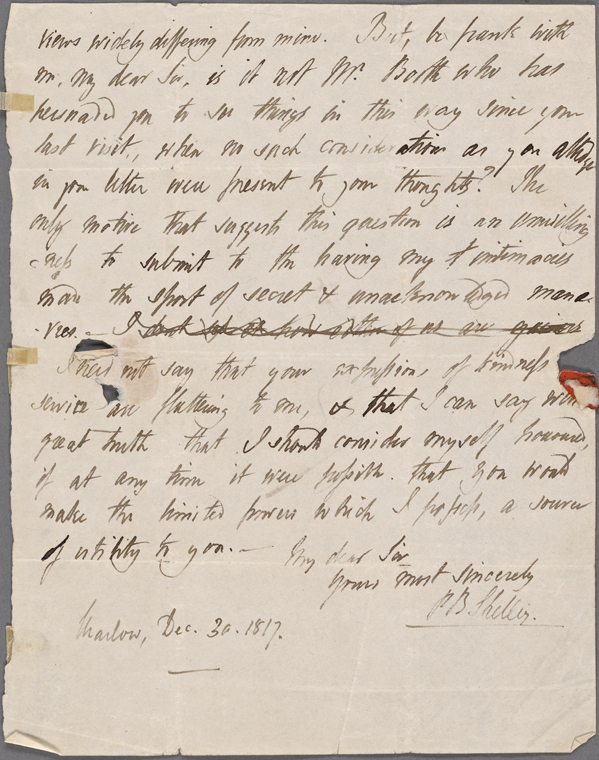 views widely differing from mine. But, be frank with
me, my dear Sir, is it not Mr. Booth who has
persuaded you to see things in this way since your
last visit, when no such considerations as you alledge
in your letter were present to your thoughts? The
only motive that suggests this question is an unwilling
-ness to submit to the having my intimacies
made the sport of secret & unacknowledged manœ
-vres. — I dont how of us are
I need not say that your expressions of kindness
service are flattering to me, & that I can say with
great truth that I should consider myself honoured,
if at any time it were possible that you would
make the limited powers which I possess, a source
of utility to you. —
My dear Sir
Yours most sincerely
PB Shelley.
Marlow, Dec. 30. 1817.